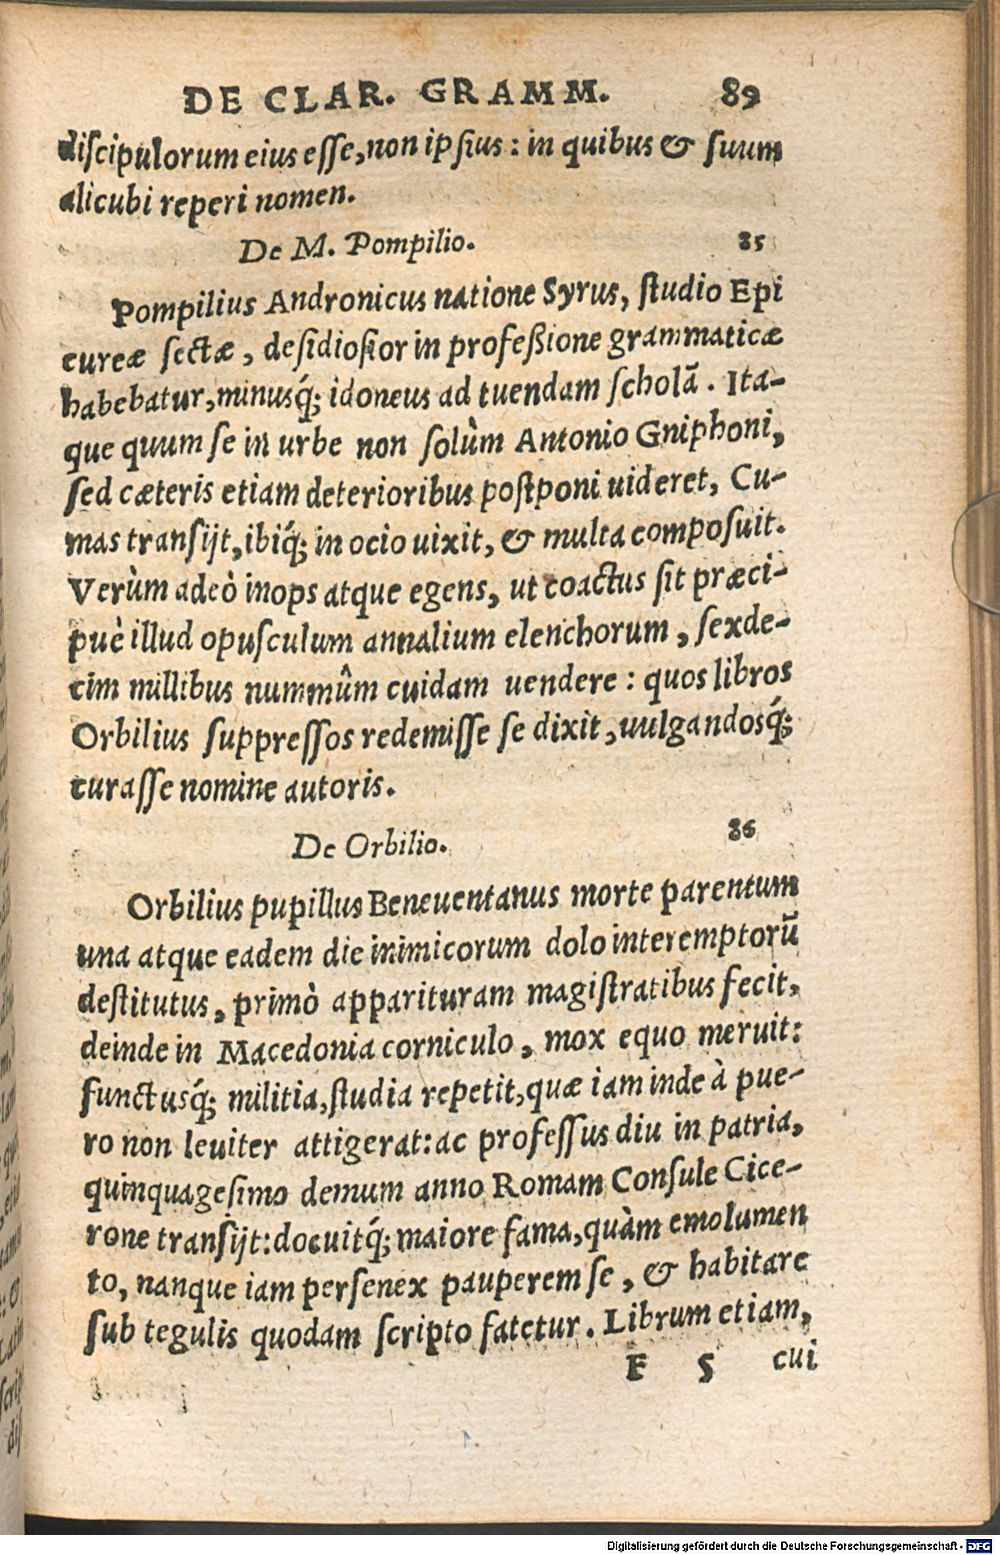 DE CLAR. GRAMM. 89
diſcipulorum eius eſſe, non ipſius: in quibus & ſuum
alicubi reperi nomen.
De M. Pompilio. 85
Pompilius Andronicus natione Syrus, ſtudio Epi
cureæ ſectæ, deſidioſior in profeßione grammaticæ
habebatur, minusq́; idoneus ad tuendam ſcholā. Ita-
que quum ſe in urbe non ſolùm Antonio Gniphoni,
ſed cæteris etiam deterioribus poſtponi uideret, Cu-
mas tranſijt, ibiq́; in ocio uixit, & multa compoſuit.
Verùm adeò inops atque egens, ut coactus ſit præci-
puè illud opuſculum annalium elenchorum, ſexde-
cim millibus nummûm cuidam uendere: quos libros
Orbilius ſuppreſſos redemiſſe ſe dixit, uulgandosq́;
curaſſe nomine autoris.
De Orbilio. 86
Orbilius pupillus Beneuentanus morte parentum
una atque eadem die inimicorum dolo interemptorū
deſtitutus, primò apparituram magiſtratibus fecit,
deinde in Macedonia corniculo, mox equo meruit:
functusq́; militia, ſtudia repetit, quæ iam inde à pue-
ro non leuiter attigerat: ac profeſſus diu in patria,
quinquageſimo demum anno Romam Conſule Cice-
rone tranſijt: docuitq́; maiore fama, quàm emolumen
to, nanque iam perſenex pauperem ſe, & habitare
ſub tegulis quodam ſcripto fatetur. Librum etiam,
F 5 cui
Digitalisierung gefördert durch die Deutsche Forschungsgemeinschaft - DFG